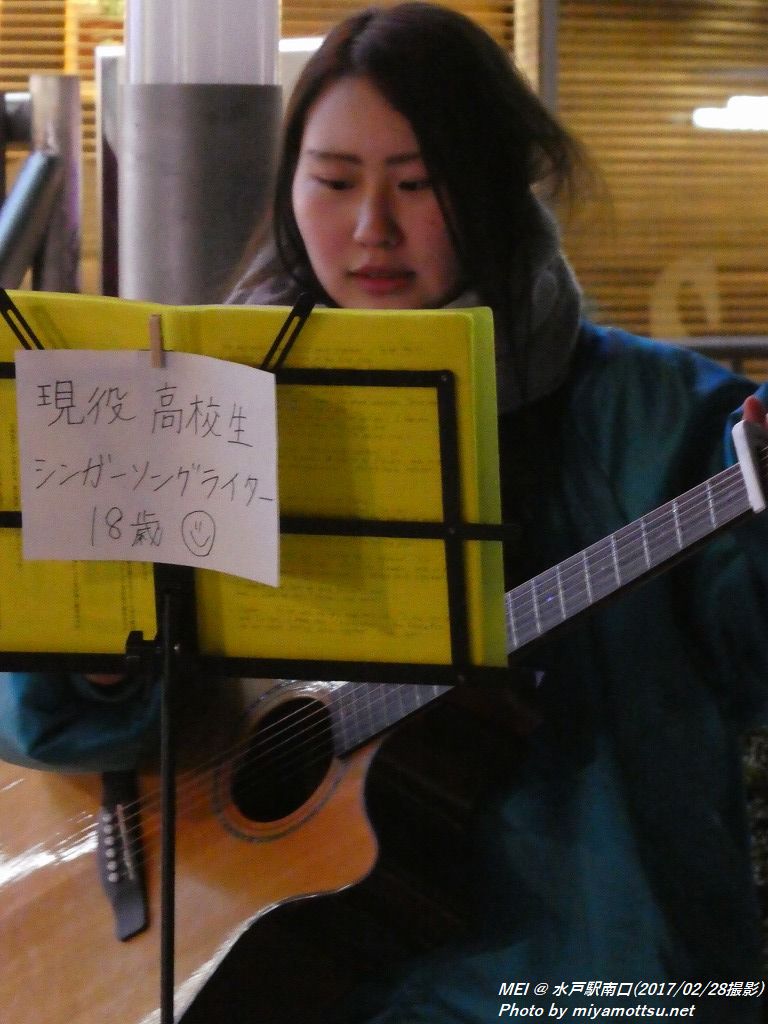 現役 高校生
シンガーソングライター
18歳
MEI @ 水戸駅南口(2017/02/28撮影)
Photo by miyamottsu.net